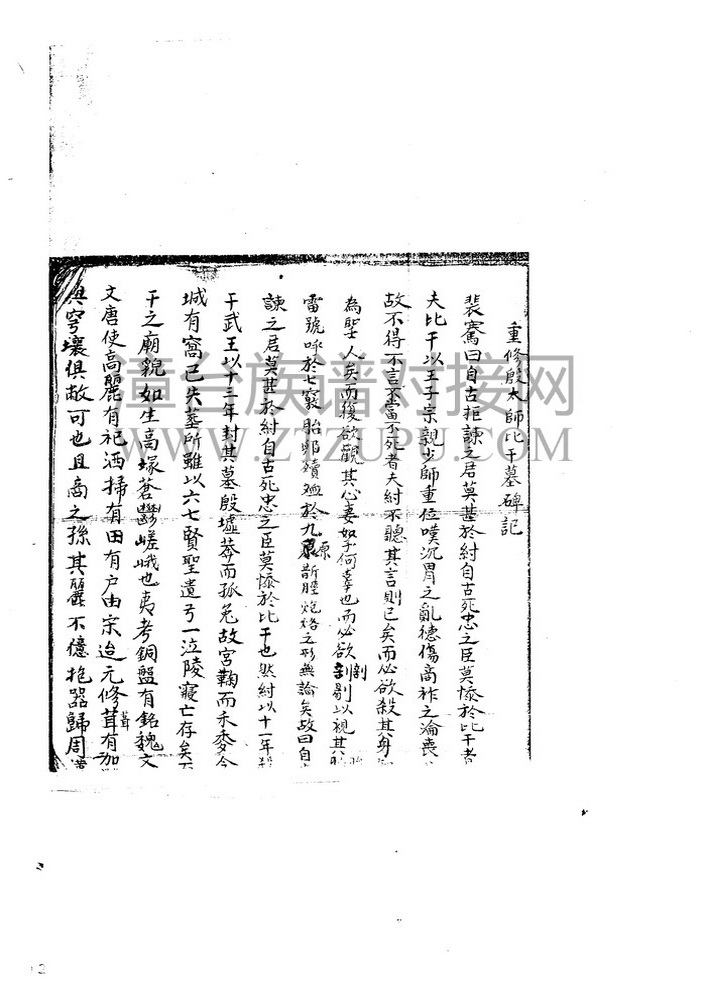 重修殷太師比干墓碑記
裴騫曰自古拒諫之君莫甚於紂自古死忠之臣莫慘於比干者
夫比干以王子宗親少師重位嘆沉胃之亂德傷商祚之淪喪
故不得不言不當不死者夫紂不聽其言則已矣而必欲殺其身
為聖人矣而復欲觀其心妻奴孥何辜也而必欲剖剔以視其胎
雷號呼於七竅胎卵殰殈於九原斮脛炮烙之形無論矣故曰自
諫之君莫甚於紂自古死忠之臣莫慘於比干也然紂以十一年殺
于武王以十三年封其墓殷墟莽而狐兔故宮鞠而禾黍今
城有窩已失墓所雖以六七賢聖遺弓一泣陵寢亡存矣
干之廟貌如生高塚蒼鬱嵯峨也夷考銅盤有銘魏文
文唐使高麗有祀洒掃有田有户由宗迨元修茸有加
與穹壤俱敝可也且商之孫其麗不億抱器歸周
漳台族谱对接网
WWW.ZTZUPU.COM
12